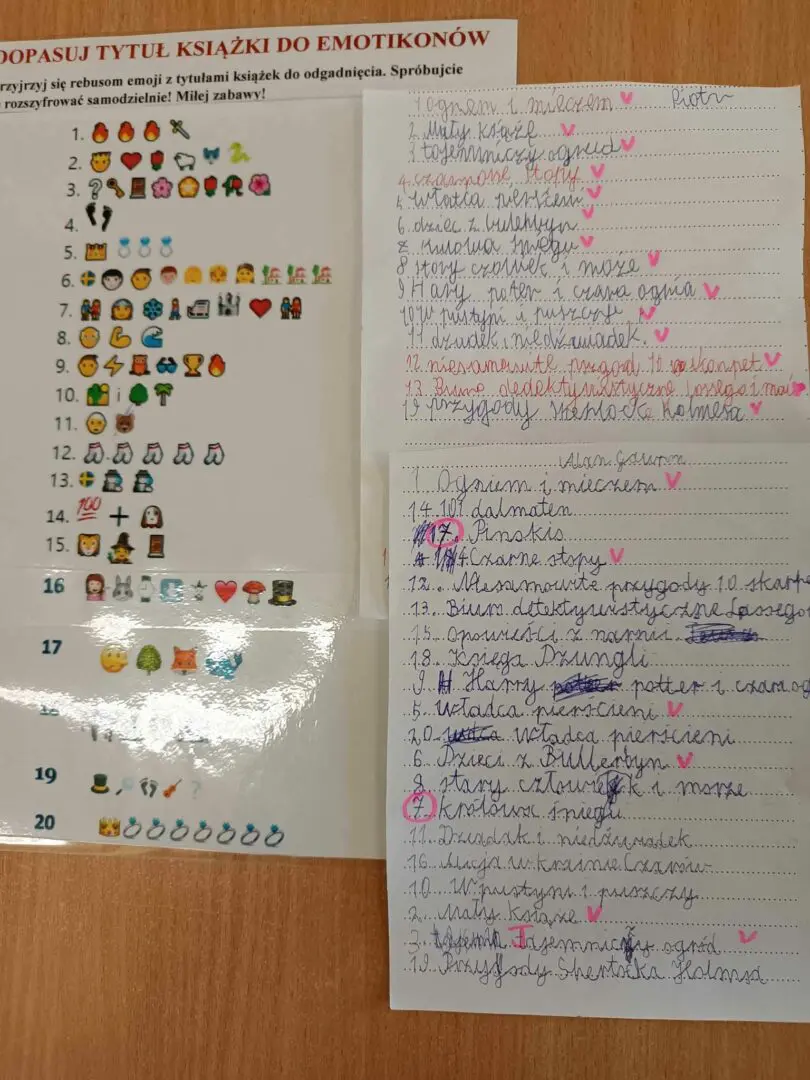 DOPASUJ TYTUŁ KSIĄŻKI DO EMOTIKONÓW
rzyjrzyj się rebusom emoji z tytułami książek do odgadnięcia. Spróbujcie
rozszyfrować samodzielnie! Miłej zabawy!
1.
2.
3.
4.
5.
6.
7.
8.
9.
10. i
11.
12.
13.
14. 100 +
15.
16
17
19
20
1 Ogniem i mieczem Piotr
2 Mały książe
3 tajemniczy ogrud
4 czarnone stopy
5 władca pierśzeni
6. dziec z bulerbyn
7 krulowa śniegu
8 stary człowiek i może
9 Hary poter i czara ognia
10 W pustyni i puszczy
11 dziadek i niedźwiadek.
12 niesamowite przygod 10 skarpet
13 Biuro dedektywistyczne lassego i maj
19 przygody Sherlocka Holmesa
Alan Gawron
1 Ogniem i mieczem
14 101 dalmaten
17. Pinokio
4 Czarne stopy
12.. Niesamowite przygody 10 skarpe
13. Biuro detektywistyczne Lassego
15. opowieści z narnii
18. Księga Dżungli
9 Harry potter i czara og
5. władca pierścieni
20. władca pierścieni
6. Dzieci z Bullerbyn
8. stary człowiek i morze
7. krolowa śniegu
11. Dziadek i niedźwiadek
16. Alicja w krainie Czarów
10. W pustyni i puszczy
2. Mały książe
3. Tajemniczy ogród
19. Przygody Sherlocka Holmsa